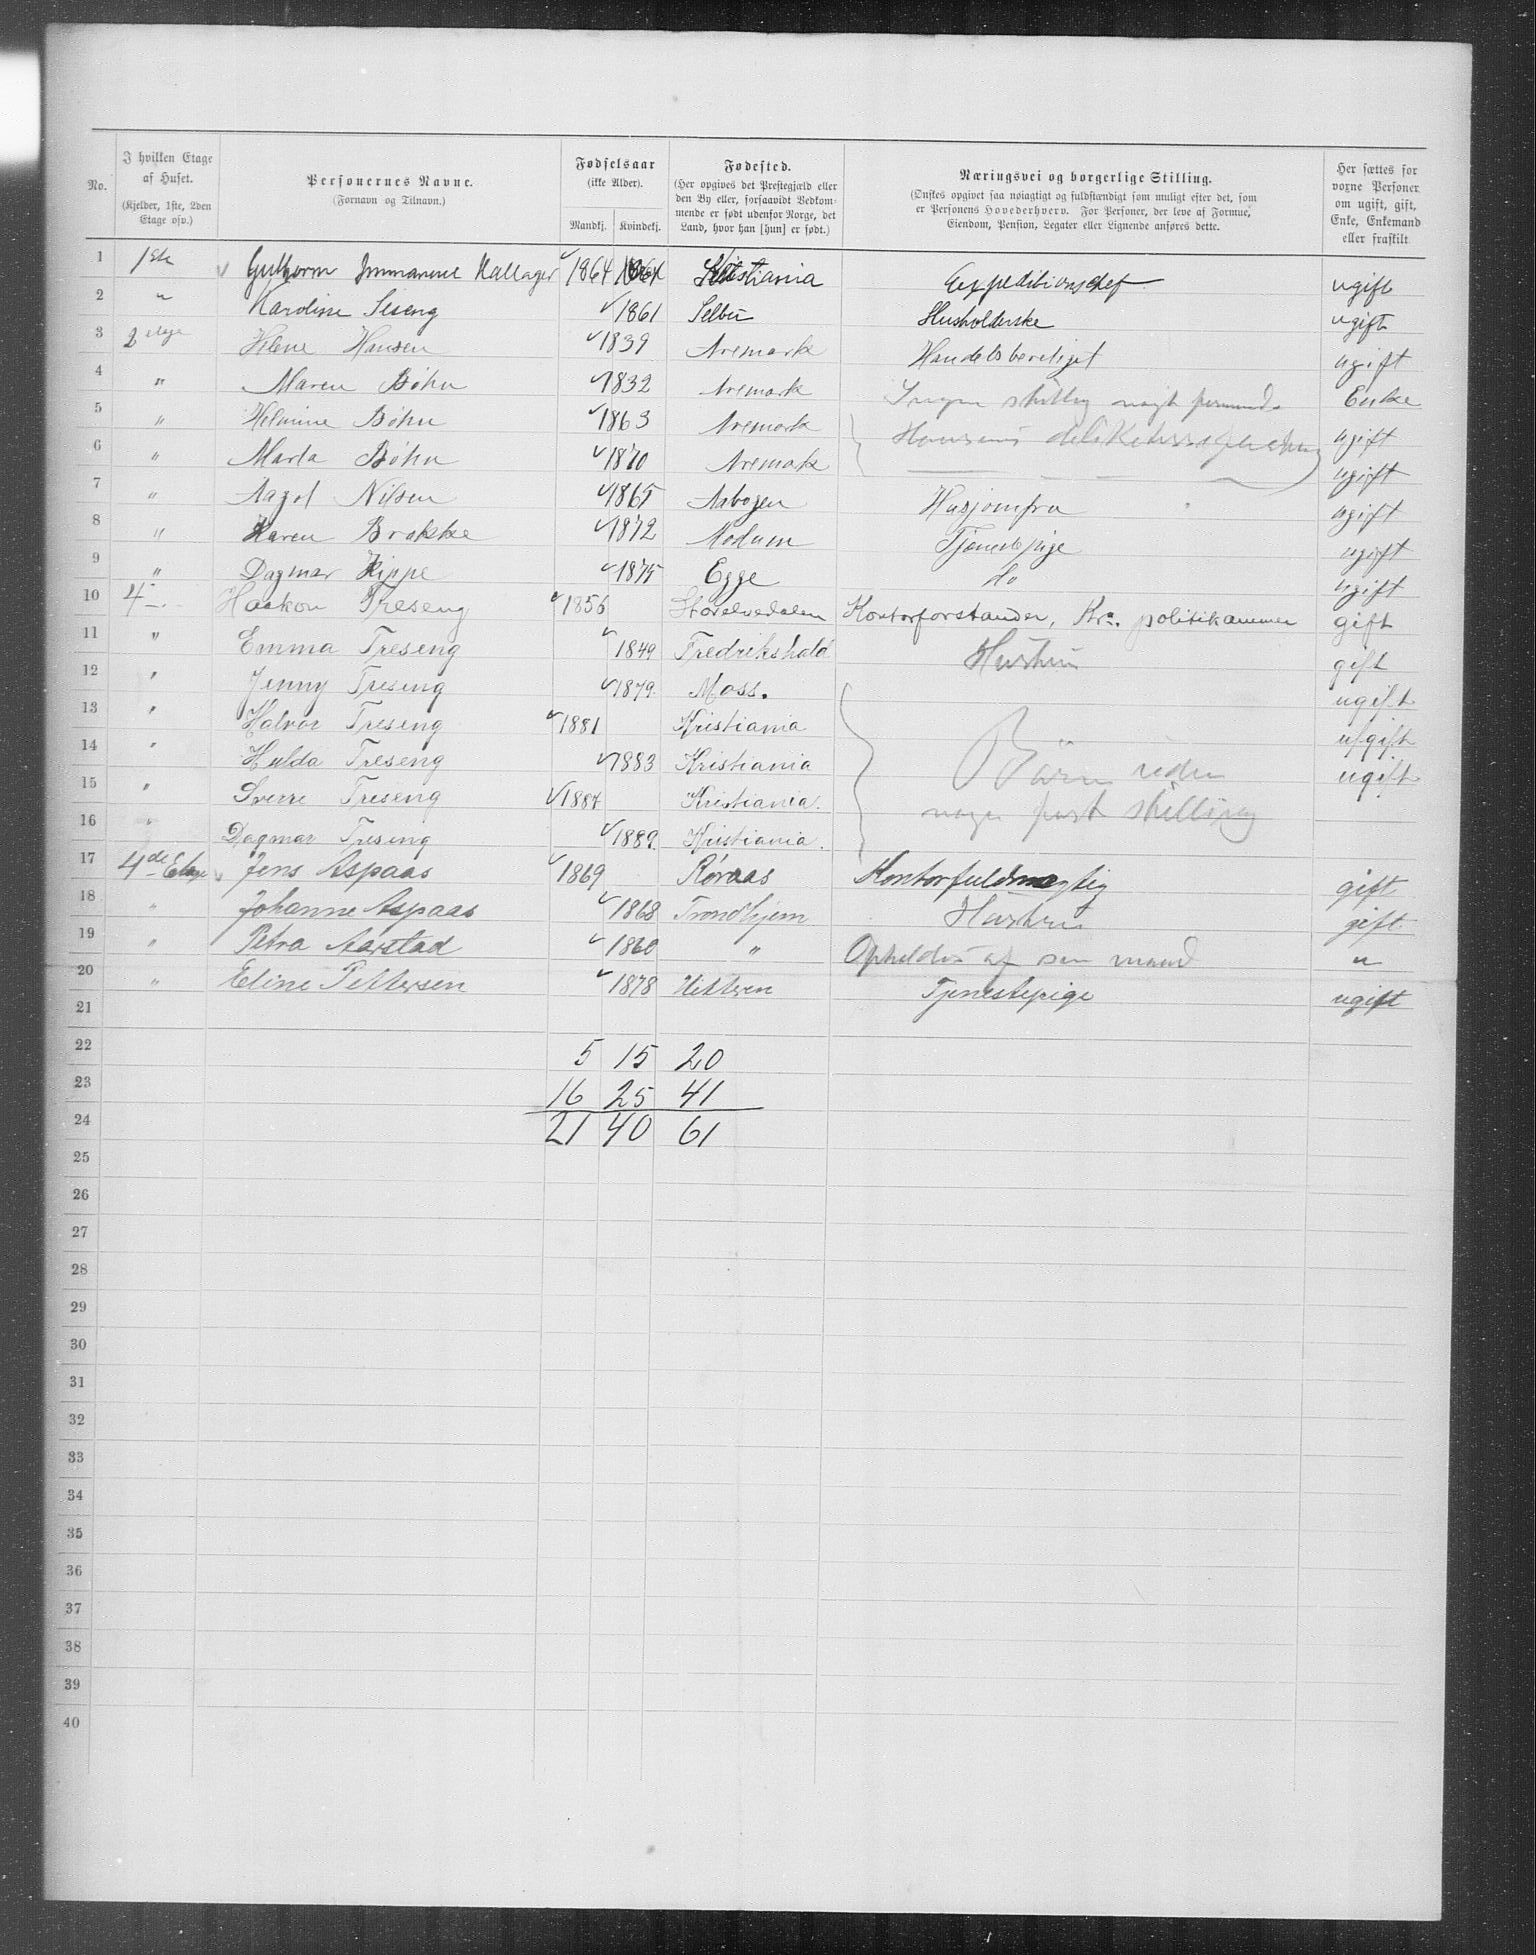 No. | I hvilken Etage af Huset. (Kjelder, 1ste, 2den Etage osv.) | Personernes Navne. (Fornavn og Tilnavn.) | Fødselsaar (ikke Alder). Mandkj. Kvindekj. | Fødested. (Her opgives det Prestegjæld eller den By eller, forsaavidt Vedkommende er født udenfor Norge, det Land, hvor han [hun] er født.) | Næringsvei og borgerlige Stilling. (Ønskes opgivet saa nøiagtigt og fuldstændigt som muligt efter det, som er Personens Hovederhverv. For Personer, der leve af Formue, Eiendom, Pension, Legater eller Lignende anføres dette.) | Her sættes for voxne Personer om ugift, gift, Enke, Enkemand eller fraskilt.
1 | 1 Etg | Guthorm Immanuel Kallager | 1864 | Kristiania | Expeditionschef | ugift
2 | " | Karoline Siseng | 1861 | Selbu | Husholderske | ugift
3 | 2 | Helene Hansen | 1839 | Aremark | Handelsberetiget | ugift
4 | " | Maren Bøhn | 1832 | Aremark | Ingen stilling | Enke
5 | " | Helmine Bøhn | 1863 | Aremark | Hansens | ugift
6 | " | Marta Bøhn | 1870 | Aremark | ugift
7 | " | Aagot Nilsen | 1865 | Aabogen | Husjomfru | ugift
8 | " | Karen Brokke | 1872 | Modum | Tjenestepige | ugift
9 | " | Dagmar Kippe | 1875 | Egge | do | ugift
10 | 4 | Haakon Treseng | 1856 | Storelvedalen | Kontorforstander, Kr.a. politikammer | gift
11 | " | Emma Treseng | 1849 | Fredrikshald | Hustru | gift
12 | " | Jenny Treseng | 1879. | Moss. | ugift
13 | " | Halvor Treseng | 1881 | Kristiania | ugift
14 | " | Hulda Treseng | 1883 | Kristiania | Børn uden | ugift
15 | " | Sverre Treseng | 1884 | Kristiania. | nogen fast stilling
16 | " | Dagmar Treseng | 1889. | Kristiania.
17 | 4de Etage | Jens Aspaas | 1869 | Røraas | Kontorfuldmægtig | gift
18 | " | Johanne Aspaas | 1868 | Trondhjem | Hustru | gift
19 | " | Petra Aarstad | 1860 | " | Opholdes af sin mand | "
20 | " | Eline Pettersen | 1878 | Hitteren | Tjenestepige | ugift
21
22 | 5 15 20
23 | 16 25 41
24 | 21 40 61
25
26
27
28
29
30
31
32
33
34
35
36
37
38
39
40